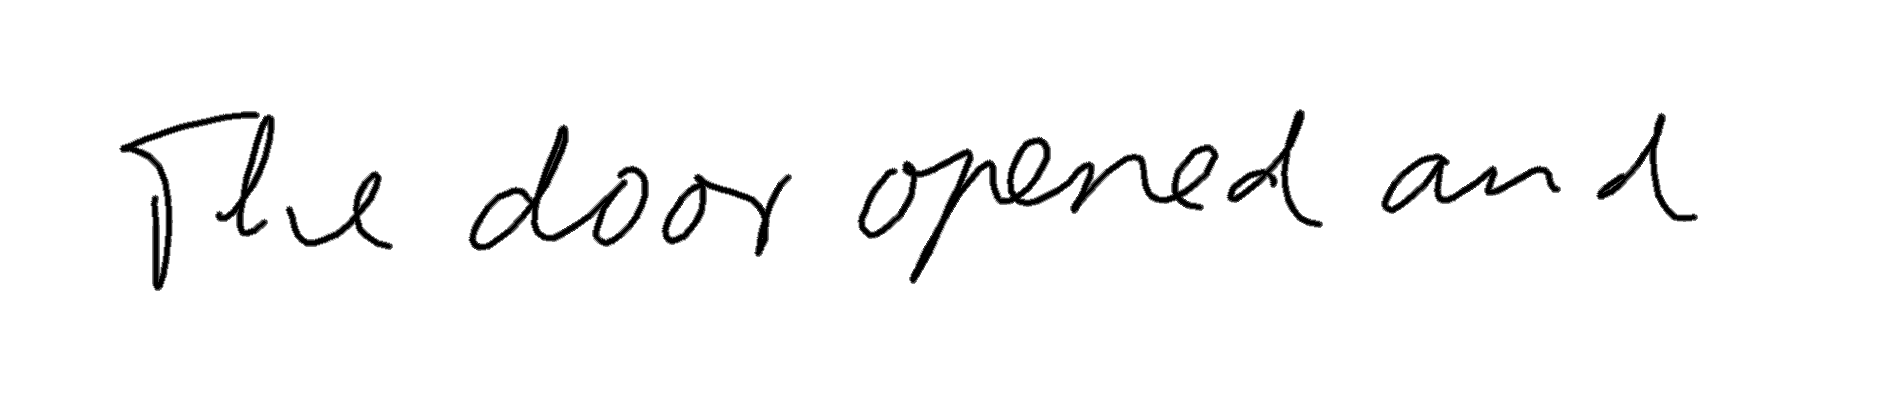 The door opened and